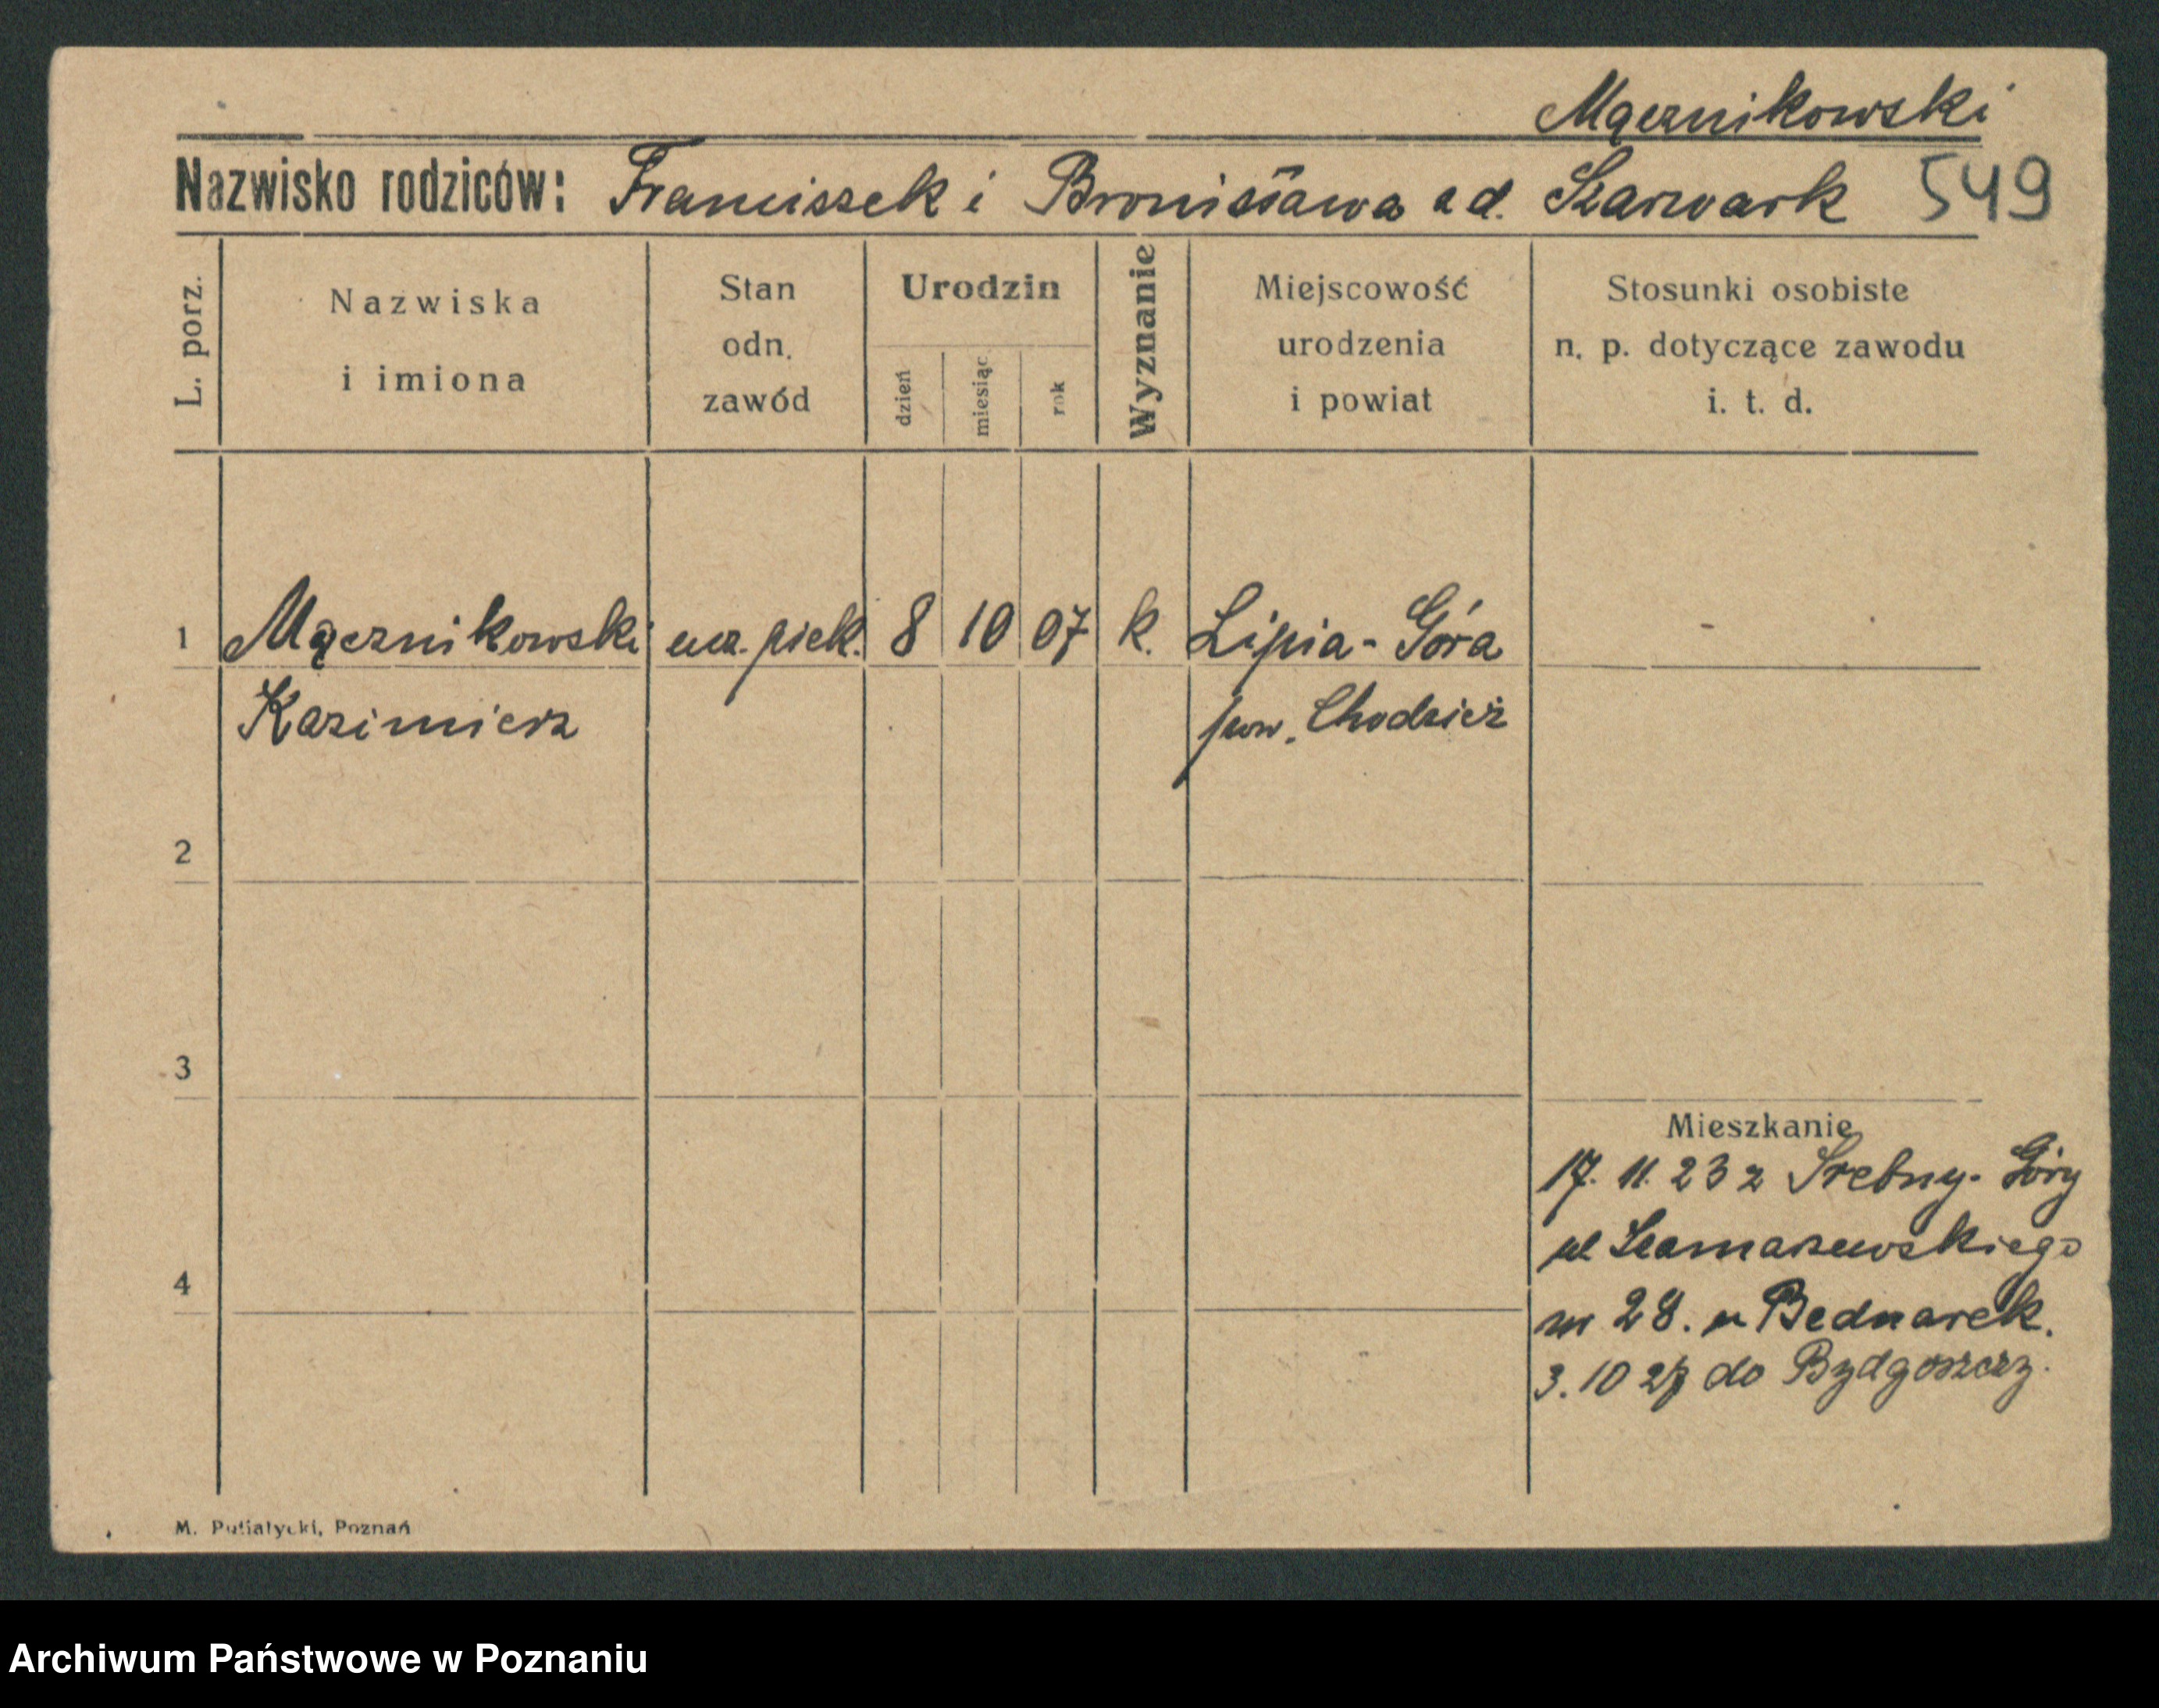 Mącznikowski
Nazwisko rodziców: Franciszek i Bronisława z d. Szarwark 549
L. porz.
Nazwiska i imiona
Stan odn. zawód
Urodzin
dzień
miesiąc
rok
Wyznanie
Miejscowość urodzenia i powiat
Stosunki osobiste n. p. dotyczące zawodu i. t. d.
1 Mącznikowski ucz. piek. 8 10 07 k. Lipia-Góra -
Kazimierz pow. Chodzież
2
3
Mieszkanie
17. 11. 23 z Srebny-Góry
ul Szamarzewskiego
4
m 28. u Bednarek.
3. 10 27 do Bydgoszczy.
M. Putiatycki, Poznań
Archiwum Państwowe w Poznaniu